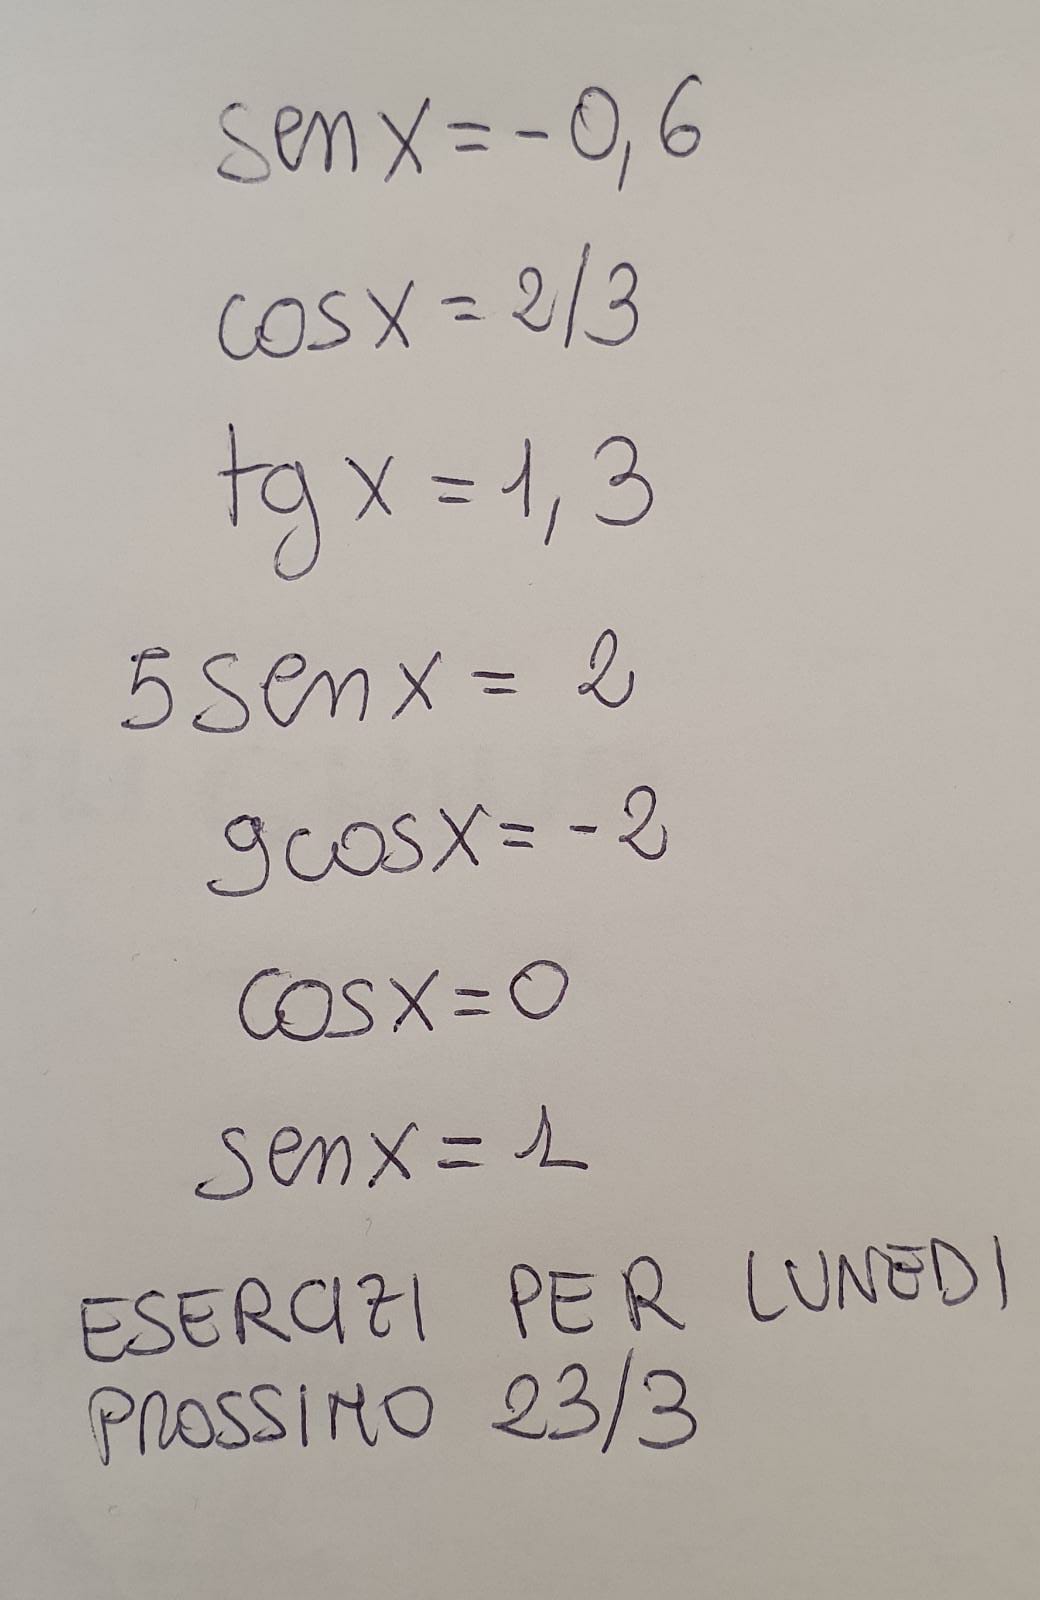 sen x = -0,6
cos x = 2/3
tg x = 1,3
5 sen x = 2
9 cos x = -2
cos x = 0
sen x = 1
ESERCIZI PER LUNEDI
PROSSIMO 23/3